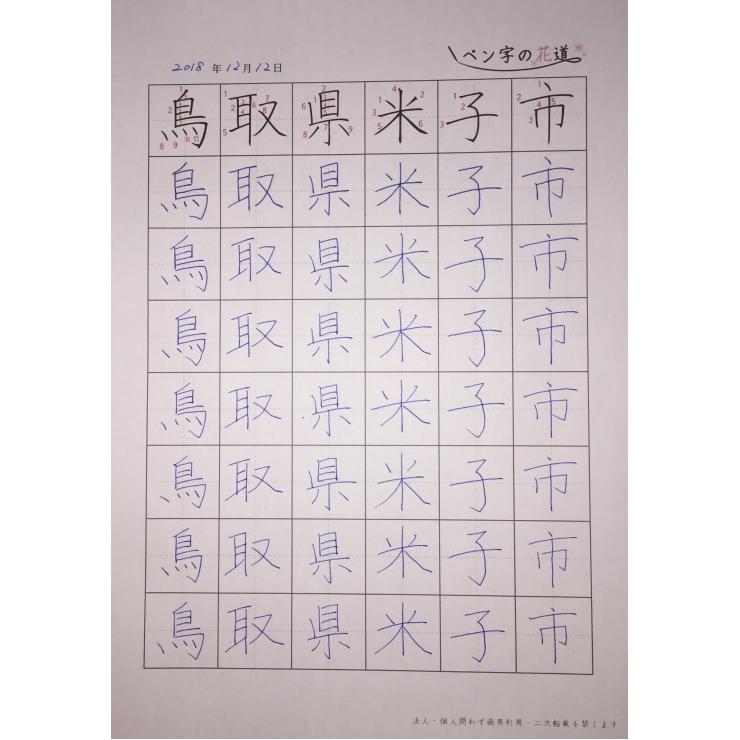 2018年12月12日
ペン字の花道
鳥取県米子市
鳥取県米子市
鳥取県米子市
鳥取県米子市
鳥取県米子市
鳥取県米子市
鳥取県米子市
鳥取県米子市
法人・個人問わず商用利用・二次転載を禁じます